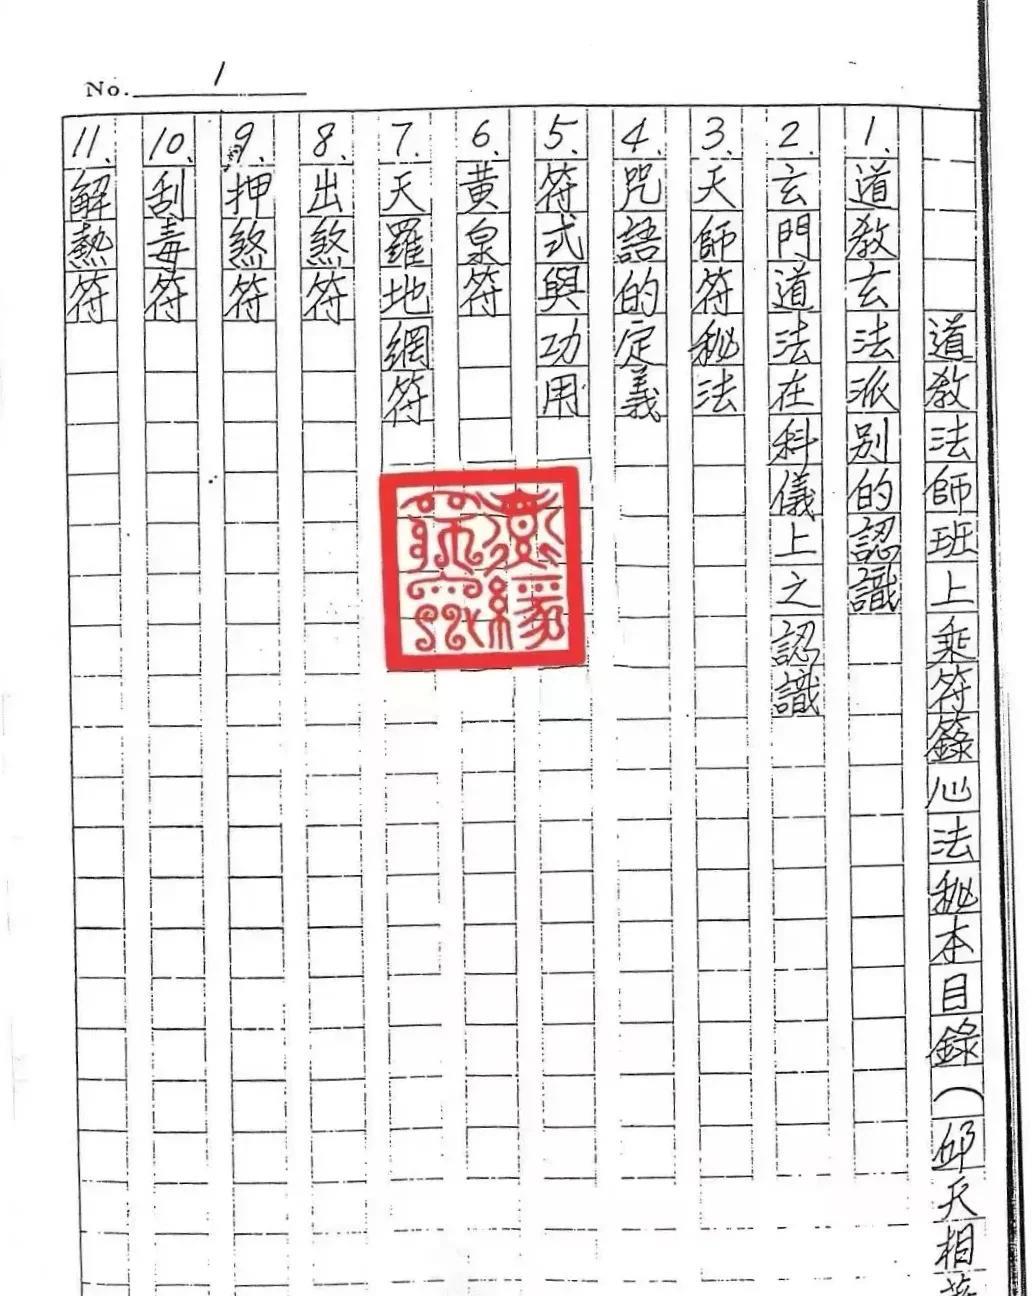 No. 1
道教法師班上乘符籙心法秘本目錄（邱天相著
1.道教玄法派別的認識
2.玄門道法在科儀上之認識
3.天師符秘法
4.咒語的定義
5.符式與功用
6.黃泉符
7.天羅地網符
8.出煞符
9.押煞符
10.刮毒符
11.解熱符